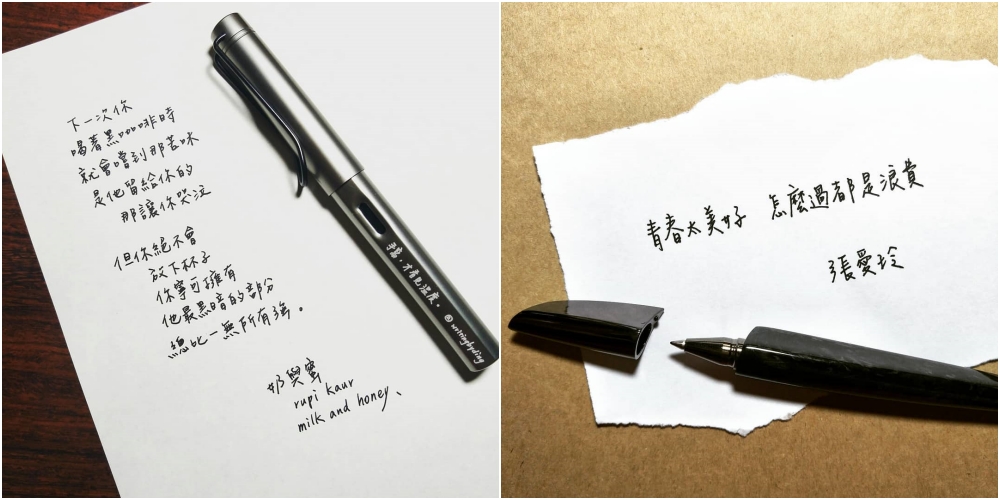 下一次你
喝著黑咖啡時
就會嚐到那苦味
是他留給你的
那讓你哭泣
但你絕不會
放下杯子
你寧可擁有
他最黑暗的部分
總比一無所有強。
奶與蜜
rupi kaur
milk and honey、
手寫，才看見溫度。
@writingbyding
青春太美好 怎麼過都是浪費
張愛玲